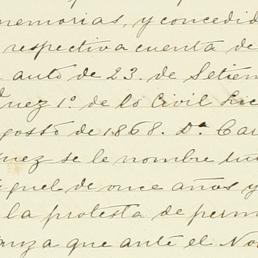 memorias, y concedid
respectiva cuenta de
auto de 23. de Setiem
Juez 1º. de lo Civil Lic
gosto de 1868. Dª Car
nez se le nombre tu
iguel de once años y
la protesta de perm
anza que ante el No